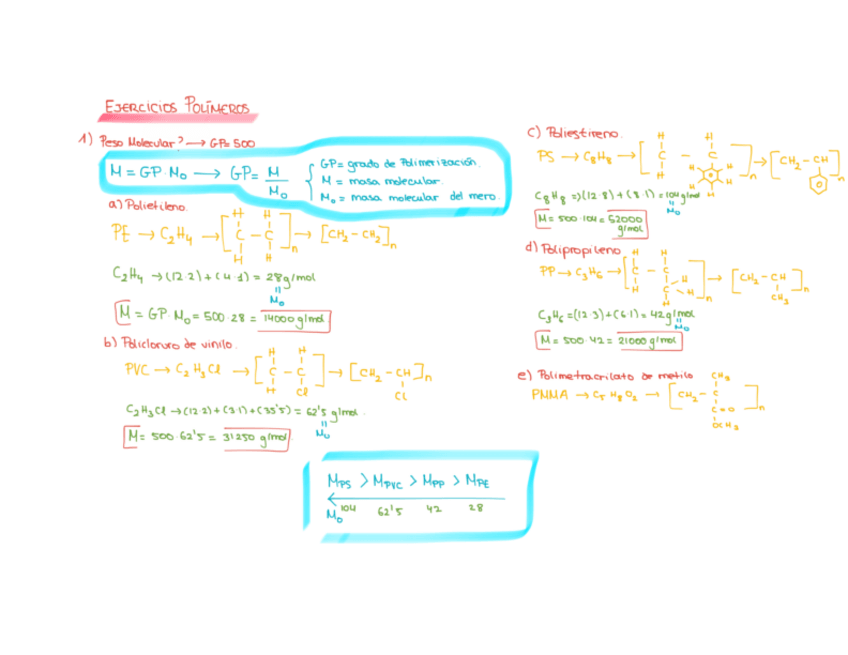 EJERCICIOS POLÍMEROS
1) Peso Molecular? → GP= 500
M = GP·M₀ → GP= M / M₀
GP= grado de Polimerización.
M = masa molecular.
M₀ = masa molecular del mero.
a) Polietileno.
PE → C₂H₄ → [H H C – C H H]n → [CH₂-CH₂]n
C₂H₄ → (12·2) + (4·1) = 28g/mol
= M₀
M = GP·M₀ = 500·28 = 14000 g/mol
b) Policloruro de vinilo.
PVC → C₂H₃Cl → [H H C – C H Cl]n → [CH₂ - CH Cl]n
C₂H₃Cl → (12·2) + (3·1) + (35'5) = 62'5 g/mol.
= M₀
M = 500·62'5 = 31250 g/mol
c) Poliestireno.
PS → C₈H₈ → [H H C – C H H H H H H]n → [CH₂ - CH]n
C₈H₈ ⇒ (12·8) + (8·1) = 104g/mol
= M₀
M = 500·104 = 52000 g/mol
d) Polipropileno
PP → C₃H₆ → [H H C – C H C H H H]n → [CH₂ - CH CH₃]n
C₃H₆ = (12·3) + (6·1) = 42g/mol
= M₀
M = 500·42 = 21000 g/mol
e) Polimetracrilato de metilo
PMMA → C₅H₈O₂ → [CH₂ - C CH₃ C=O OCH₃]n
M_PS > M_PVC > M_PP > M_PE
M₀ 104 62'5 42 28